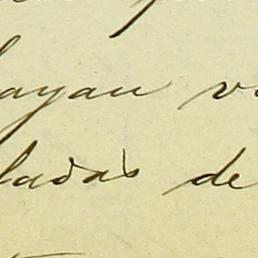 hayan v
ladas de